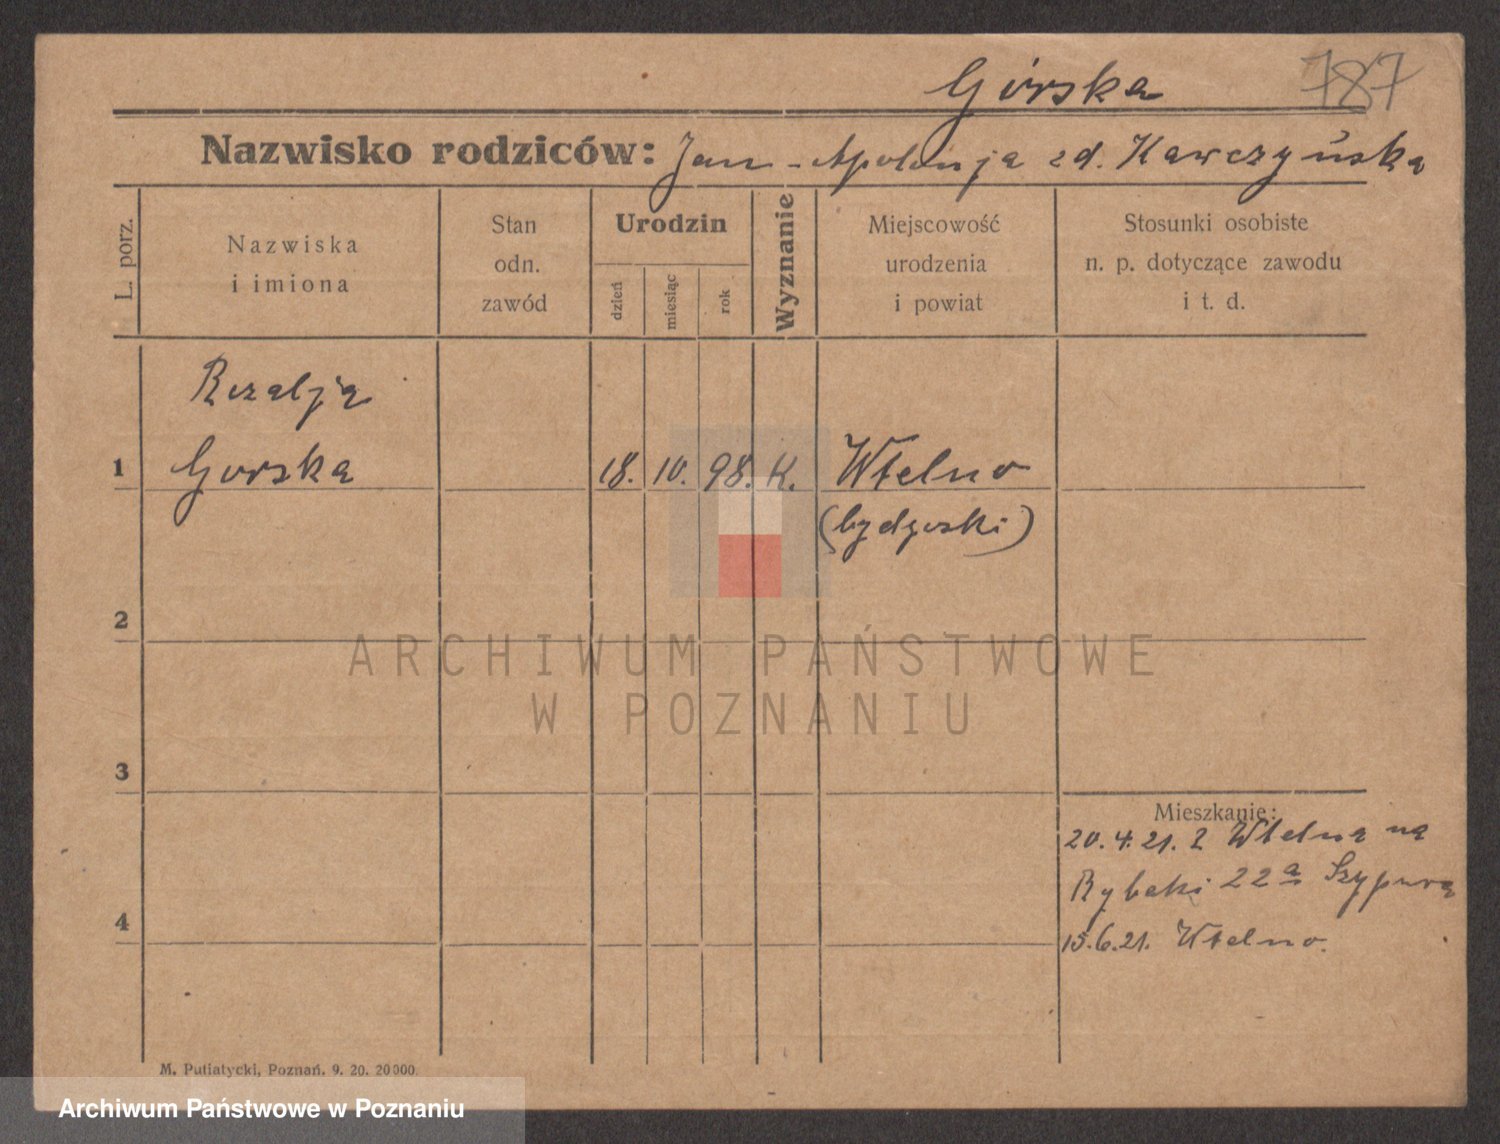 Górska 787
Nazwisko rodziców: Jan - Apolonja zd. Kawczyńska
L. porz.
Nazwiska
i imiona
Stan
odn.
zawód
Urodzin
dzień
miesiąc
rok
Wyznanie
Miejscowość
urodzenia
i powiat
Stosunki osobiste
n. p. dotyczące zawodu
i t. d.
Rozalja
1 Gorska 18. 10. 98. K. Wtelno
(bydgoski)
2
ARCHIWUM PAŃSTWOWE
W POZNANIU
3
Mieszkanie:
20.4.21. z Wtelna na
Rybaki 22a Szypura
4
15.6.21. Wtelno.
M. Putiatycki, Poznań. 9. 20. 20000.
Archiwum Państwowe w Poznaniu